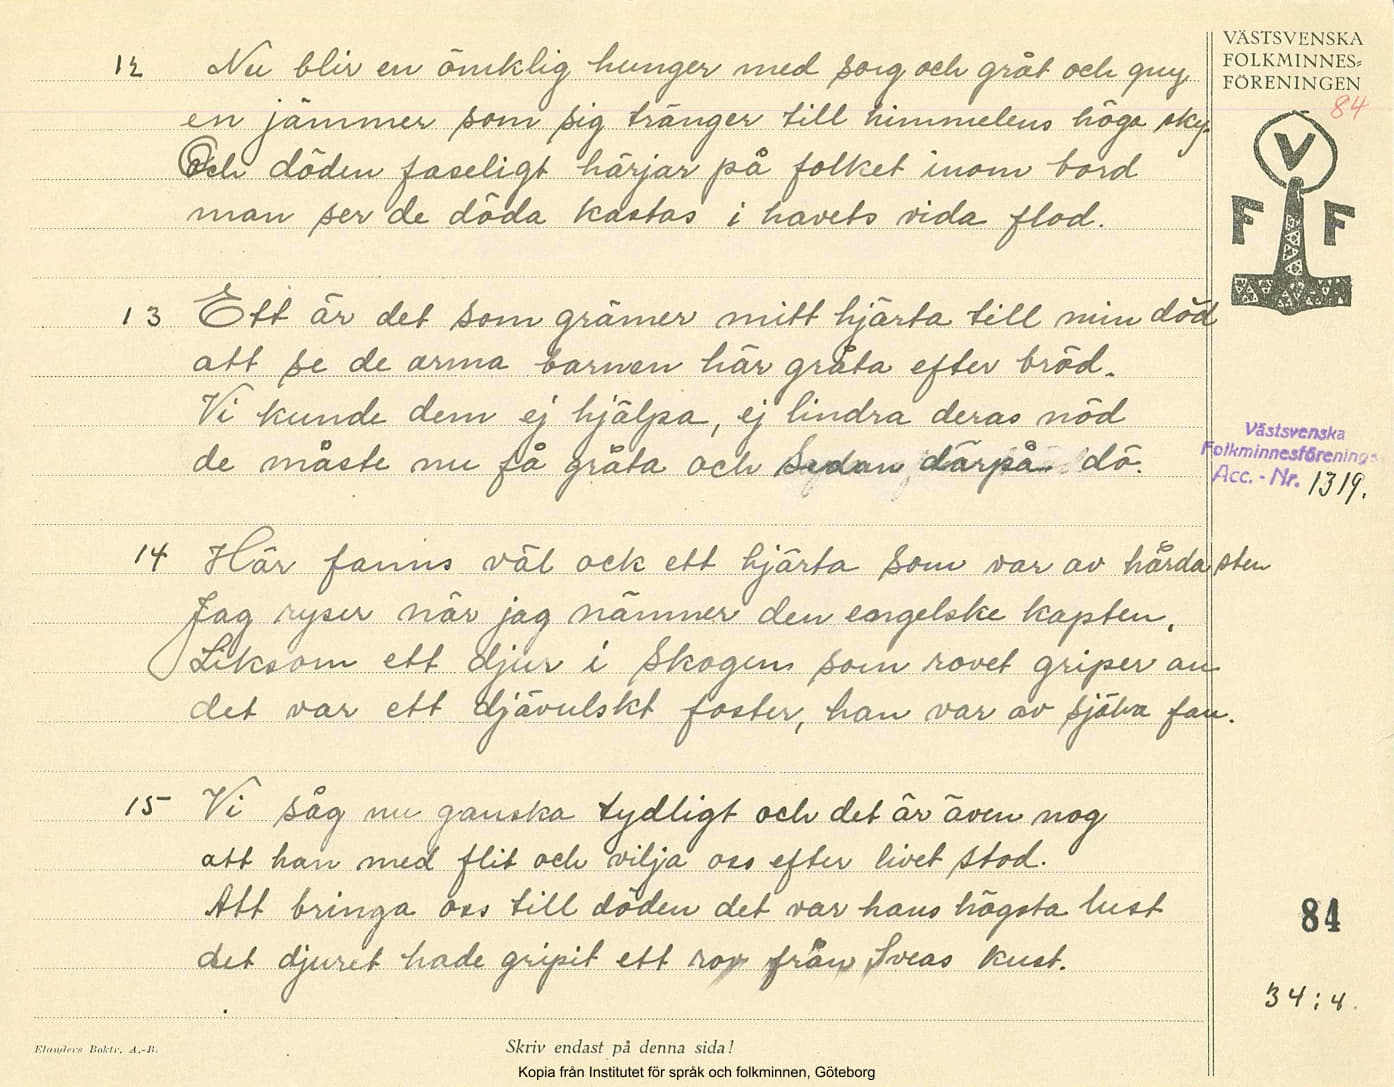 VÄSTSVENSKA
FOLKMINNES=
FÖRENINGEN
84
V
F F
12 Nu blir en ömklig hunger med sorg och gråt och gny
en jämmer som sig tränger till himmelens höga sky.
Och döden faseligt härjar på folket inom bord
man ser de döda kastas i havets vida flod.
13 Ett är det som grämer mitt hjärta till min död
att se de arma barnen här gråta efter bröd.
Vi kunde dem ej hjälpa, ej lindra deras nöd
de måste nu få gråta och sedan därpå dö.
Västsvenska
Folkminnesförening
Acc.-Nr. 1319.
14 Här fanns väl ock ett hjärta som var av hårda sten
Jag ryser när jag nämner den engelske kapten,
Liksom ett djur i skogens som rovet griper an
det var ett djävulskt foster, han var av sjöva fan.
15 Vi såg nu ganska tydligt och det är även nog
att han med flit och vilja oss efter livet stod.
Att bringa oss till döden det var hans högsta lust
det djuret hade gripit ett rov från Sveas kust.
84
34:4.
Elanders Boktr. A.-B.
Skriv endast på denna sida!
Kopia från Institutet för språk och folkminnen, Göteborg